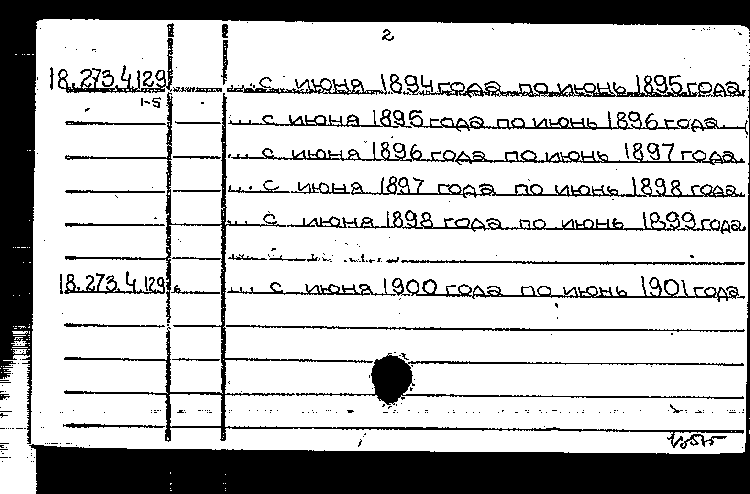 2
18.273.4.129 ... с июня 1894 года по июнь 1895 года.
1-5 ... с июня 1895 года по июнь 1896 года.
... с июня 1896 года по июнь 1897 года.
... с июня 1897 года по июнь 1898 года.
... с июня 1898 года по июнь 1899 года
18.273.4.129 6 ... с июня 1900 года по июнь 1901 года